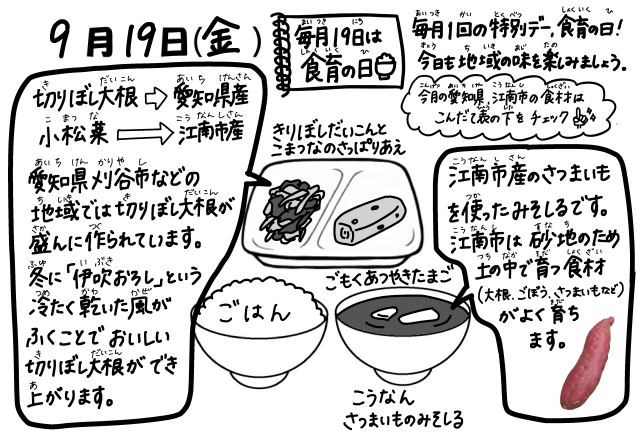 9月19日(金)
毎月19日は
食育の日
毎月1回の特別デー、食育の日!
今日も地域の味を楽しみましょう。
今月の愛知県、江南市の食材は
こんだて表の下をチェック
切りぼし大根⇨愛知県産
小松菜⇨江南市産
愛知県刈谷市などの
地域では切りぼし大根が
盛んに作られています。
冬に「伊吹おろし」という
冷たく乾いた風が
ふくことでおいしい
切りぼし大根ができ
上がります。
きりぼしだいこんと
こまつなのさっぱりあえ
ごもくあつやきたまご
ごはん
こうなん
さつまいものみそしる
江南市産のさつまいも
を使ったみそしるです。
江南市は砂地のため
土の中で育つ食材
(大根、ごぼう、さつまいもなど)
がよく育ち
ます。